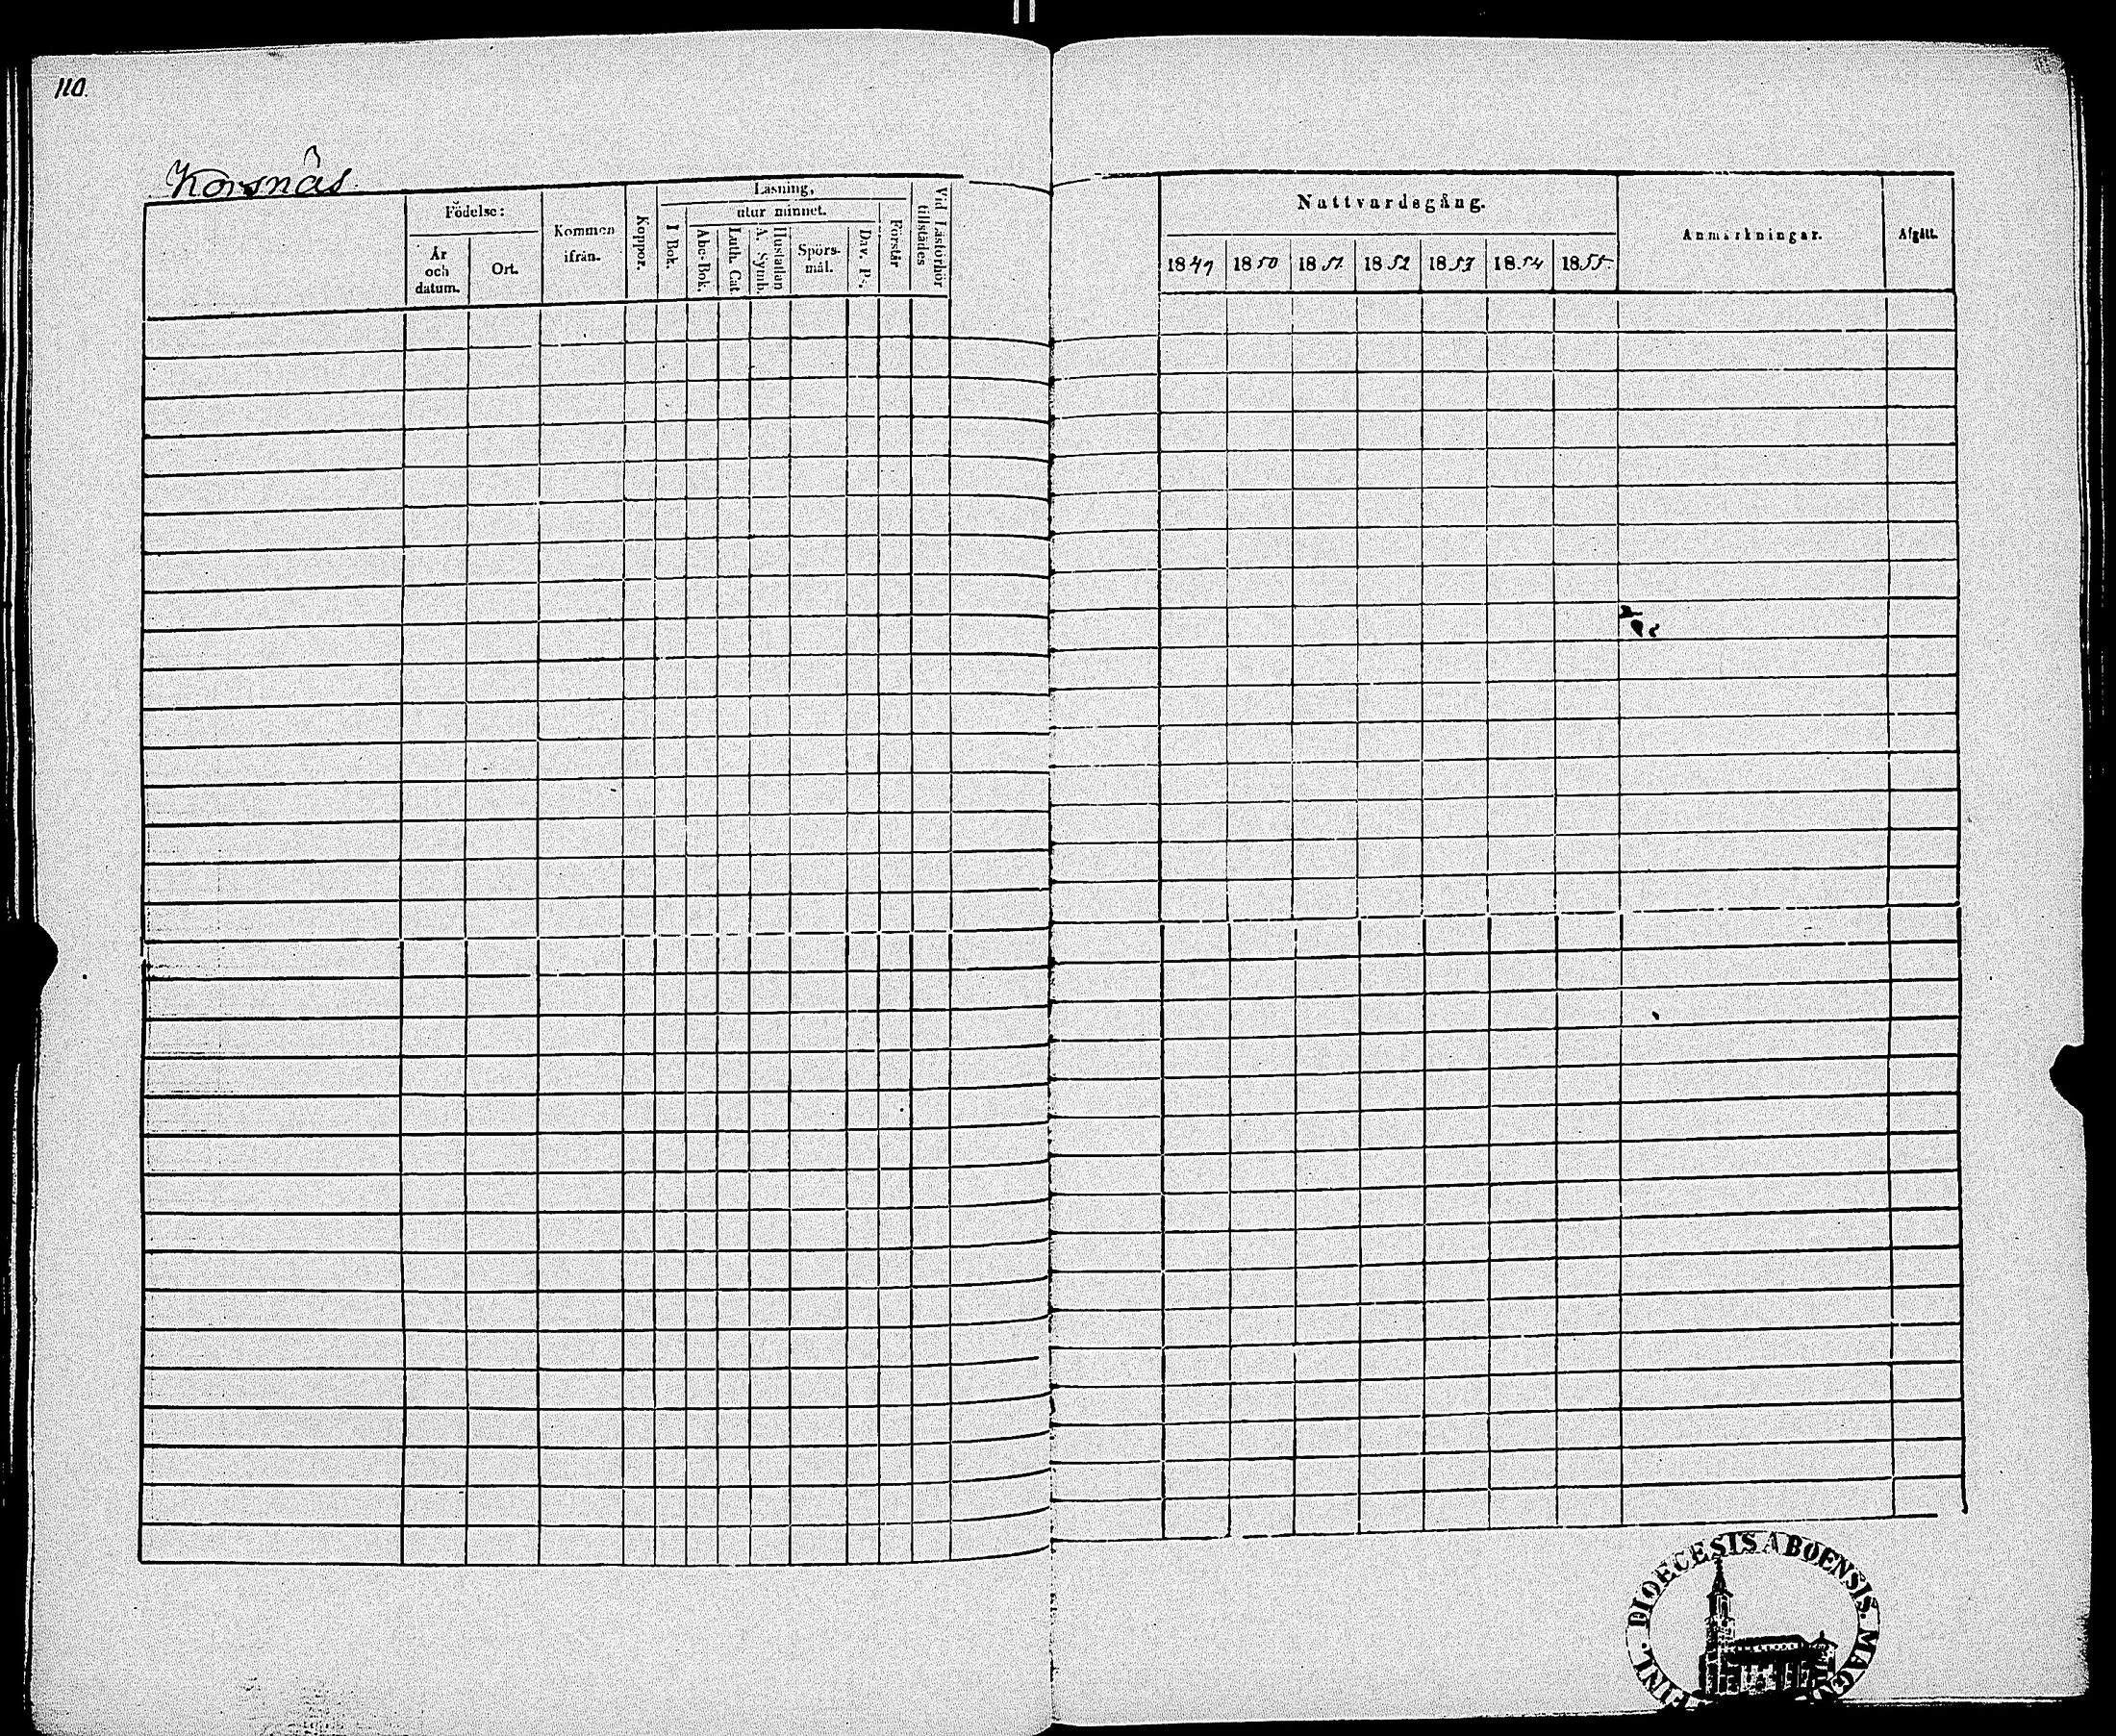 110.
Korsnäs
Födelse:
År och datum.
Ort.
Kommen ifrån.
Koppor.
Läsning,
I Bok.
utur minnet.
Abc-Bok.
Luth. Cat.
Hustaflan A. Symb.
Spörs-mål.
Dav. Ps.
Förstår
Vid Läsförhör tillstädes
Nattvardsgång.
1849 1850 1851. 1852 1853 1854 1855.
Anmärkningar.
Afgått.
FINL. DIOECESIS ABOENSIS. MAGN